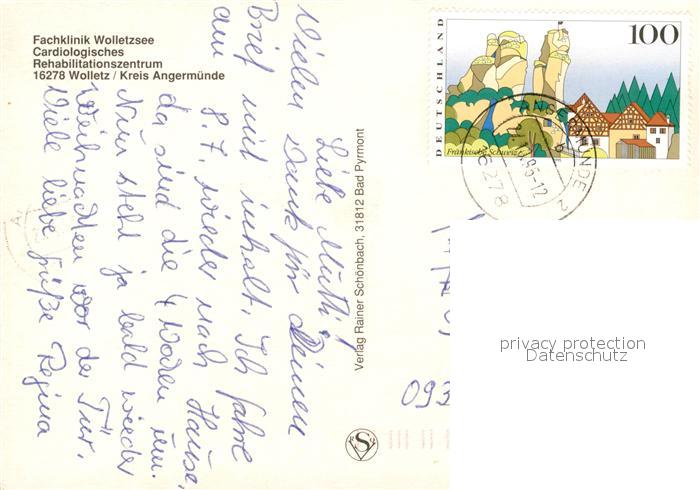 Fachklinik Wolletzsee
Cardiologisches
Rehabilitationszentrum
16278 Wolletz / Kreis Angermünde
Liebe Mutti!
Vielen Dank für Deinen
Brief mit Inhalt. Ich fahre
am 8.7. wieder nach Hause,
da sind die 4 Wochen um.
Nun steht ja bald wieder
Weihnachten vor der Tür.
Viele liebe Grüße Regina
Verlag Rainer Schönbach, 31812 Bad Pyrmont
DEUTSCHLAND
100
Fränkische Schweiz
ANGERMÜNDE 2
16278
093
privacy protection
Datenschutz